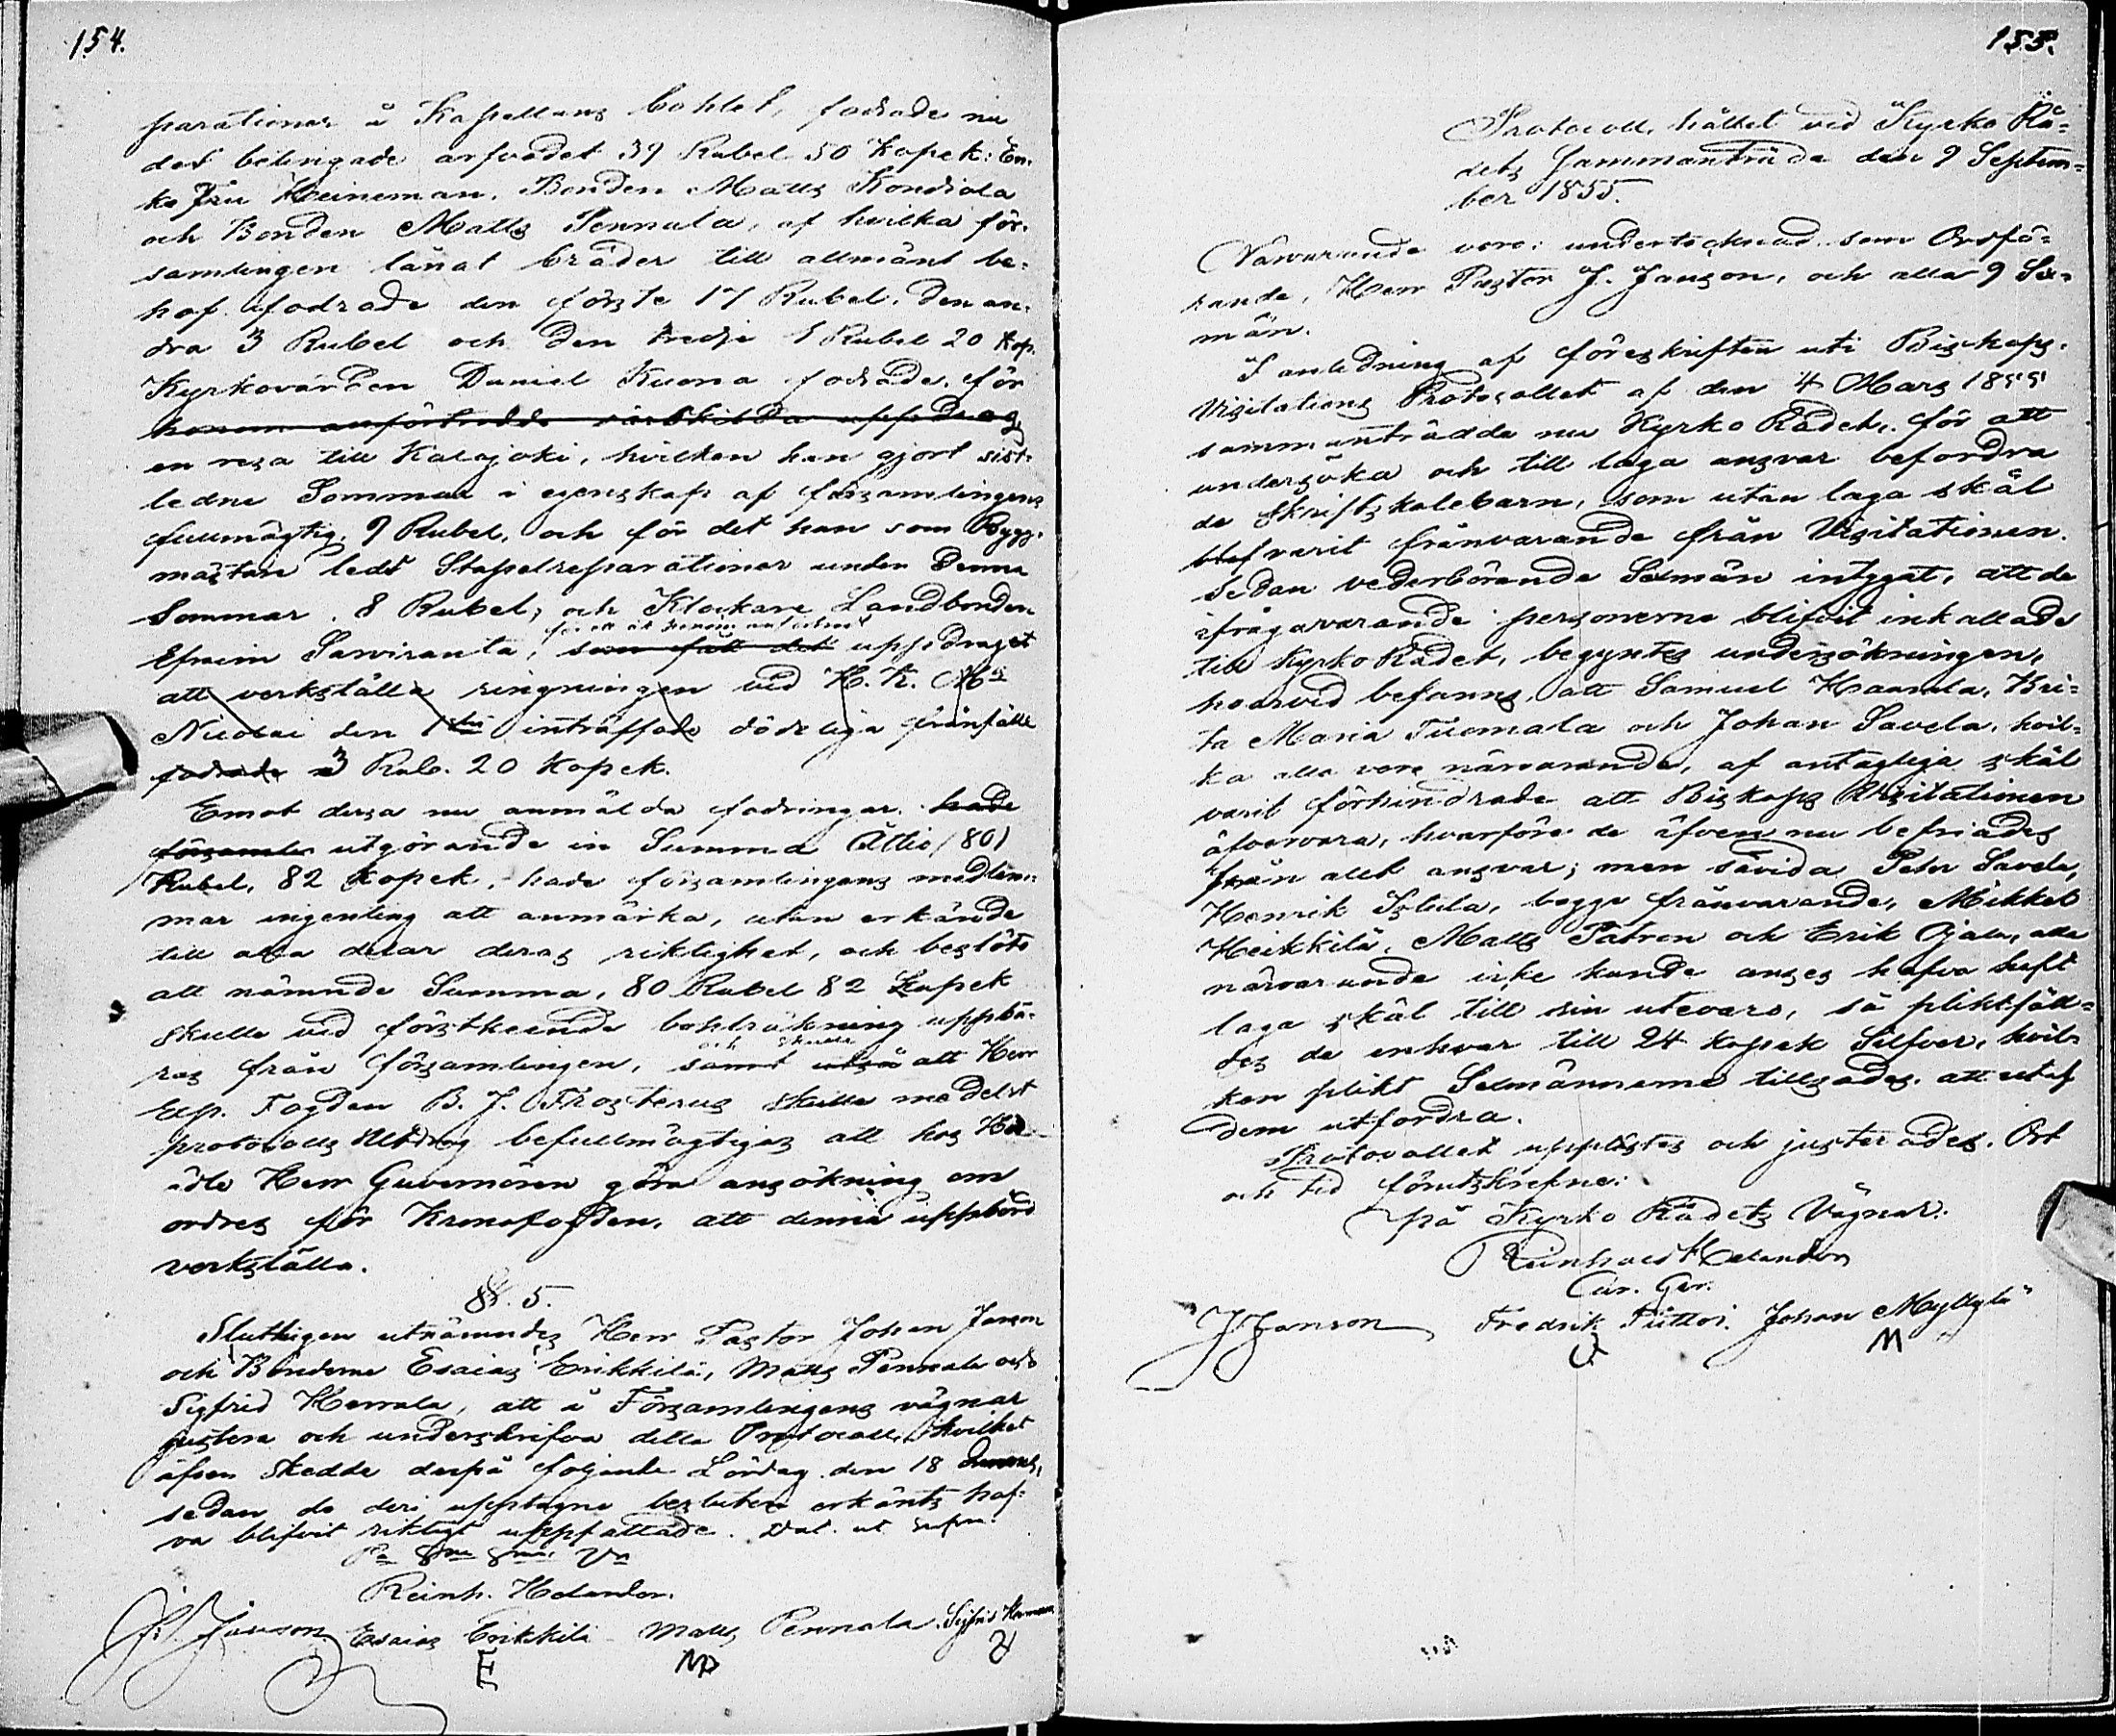 154.
parationer å Kapellans bohlet, fodrade nu
det betingade arfvodet 39 Rubel 50 Kopek: En-
ke Fru Heineman, Bonden Matts Kondiola
och Bonden Matts Pennala, af hvilka för-
samlingen lånat bräder till allmänt be-
hof fodrade den förste 17 Rubel, den an-
dra 3 Rubel och den tredje 1 Rubel 20 Kop.
Kyrkovärden Daniel Kuona fodrade för
honom anförtrodda särskilda uppdrag
en resa till Kalajoki, hvilken han gjort sist-
ledne Sommar i egenskap af församlingens
fullmägtig, 9 Rubel, och för det han som Bygg-
mästare ledt Stapelreparationer under denna
Sommar 8 Rubel, och Klockare Landbonden
för ett åt honom
Efraim Sarviranta, som fått det uppdraget
att verkställa ringningen vid H. K. M:s
Nicolai den 1:sta inträffade dödeliga frånfälle
fodrade 3 Rub. 20 Kopek.
Emot dessa nu anmälda fodringar hade
församlin utgörande in Summa Åttio /80/
Rubel, 82 Kopek, hade församlingens medlem-
mar ingenting att anmärka, utan erkände
till alla delar deras riktighet, och beslöts
att nämnde Summa, 80 Rubel 82 Kopek
skulle vid förstkommande uppbä-
och skulle
ras från församlingen, samt att Herr
Exp. Fogden B. J. Frosterus skulle medelst
protocolls utdrag befullmägtigas att hos Hög-
ädle Herr Guvernören göra ansökning om
ordres för Kronofogden, att denna uppbörd
verkställa.
§. 5.
Slutligen utnämndes Herr Pastor Johan Janson
och Bönderne Esaias Erikkilä, Matts Pennala och
Sigfrid Herrala, att å Församlingens vägnar
justera och underskrifva detta Protocoll, hvilket
äfven skedde derpå följande Lördag den 18
sedan de deri upptagne besluten erkänts haf-
va blifvit riktigt uppfattade. Dat. ut supra.
Reinh. Helander.
J. Janson Esaias Erikkilä Matts Pennala. Sigfrid
E MP
155.
Protocoll, hållet vid Kyrko Rå-
dets Sammanträde den 9 Septem-
ber 1855.
Närvarande voro: undertecknad som Ordfö-
rande, Herr Pastor J. Janson, och alla 9 Sex-
män.
I anledning af föreskriften uti Biskops-
Visitations Protocollet af den 4 Mars 1855
sammanträdde nu Kyrko Rådet, för att
undersöka och till laga ansvar befordra
de Skriftskolebarn, som utan laga skäl
blef varit frånvarande från Visitationen.
Sedan vederbörande Sexmän intygat, att de
ifrågavarande personerne blifvit inkallade
till Kyrko Rådet, begyntes undersökningen,
hvarvid befanns, att Samuel Haarala, Bri-
ta Maria Tuomala och Johan Savela, hvil-
ka alla voro närvarande, af antagliga skäl
varit förhindrade att Biskops Visitationen
öfvervara, hvarföre de äfven nu befriades
från allt ansvar; men såvida Petr Savela,
Henrik Islula, begge frånvarande, Mikkel
Heikkilä, Matts Patron och Erik Ojala, alla
närvarande icke kunde anses hafva haft
laga skäl till sin utevaro, så pliktfäll-
des de enhvar till 24 kopek Silfver, hvil-
ken plikt Sexmännerne tillsades att utaf
dem utfordra.
Protocollet upplästes och justerades. Ort
och tid förutskrefne:
på Kyrko Rådets Vägnar:
Reinhold Helander
Cur. Ger.
J. Janson Fredrik Püttöi. Johan Myllylä
M